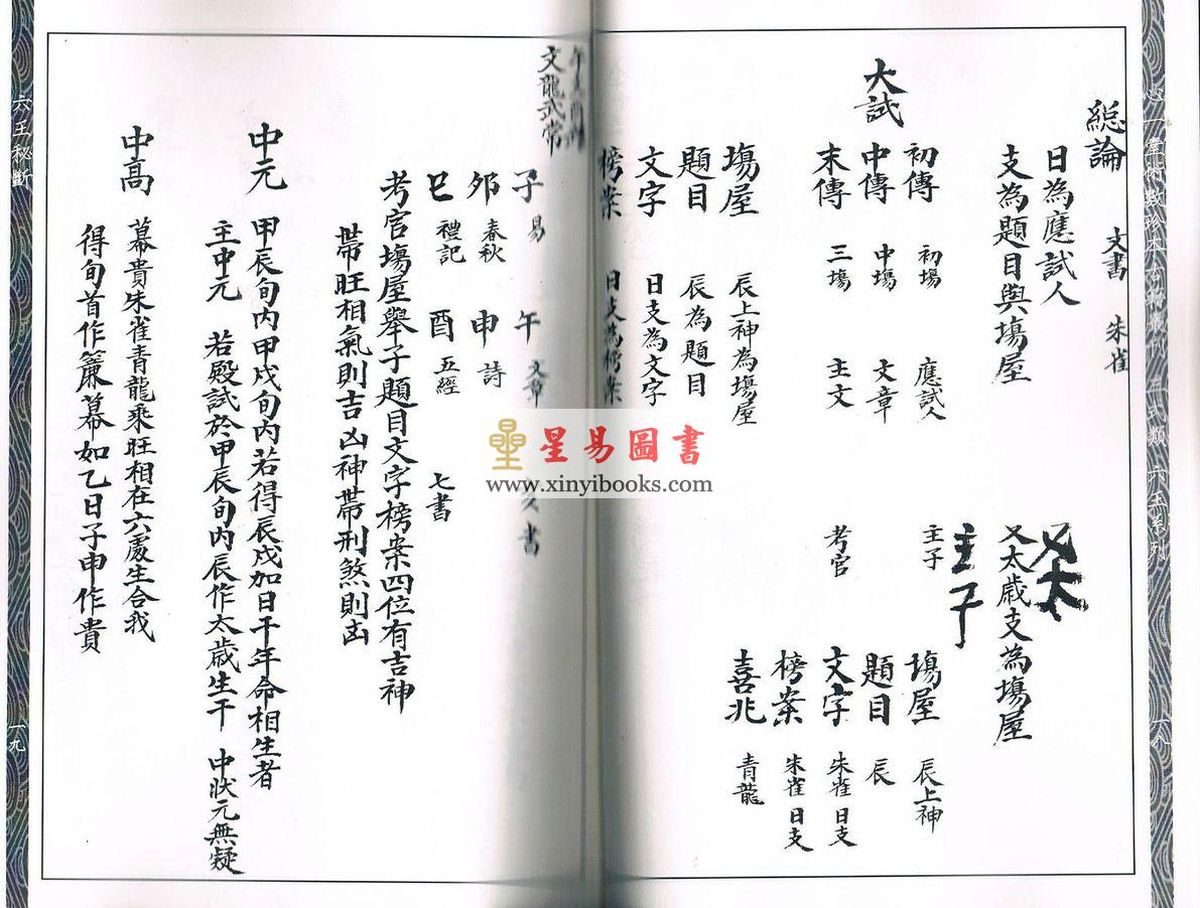 總論
文書 朱雀
日為應試人
支為題目與塲屋
又太歲支為塲屋
又太
主子
大試
初傳 初塲 應試人 主子 塲屋 辰上神
中傳 中塲 文章 題目 辰
末傳 三塲 主文 考官 文字 朱雀日支
榜案 朱雀日支
喜兆 青龍
塲屋 辰上神為塲屋
題目 辰為題目
文字 日支為文字
榜案 日支為榜案
一八
文龍武常
子 易 午 文章 文書
夘 春秋 申 詩
巳 禮記 酉 五經 七書
考官塲屋舉子題目文字榜案四位有吉神
帶旺相氣則吉凶神帶刑煞則凶
中元 甲辰旬內甲戌旬內若得辰戌加日干年命相生者
主中元 若殿試於甲辰旬內辰作太歲生干 中狀元無疑
中高 幕貴朱雀青龍乘旺相在六處生合我
得旬首作簾幕如乙日子申作貴
六壬秘斷
一九
星易圖書
www.xinyibooks.com